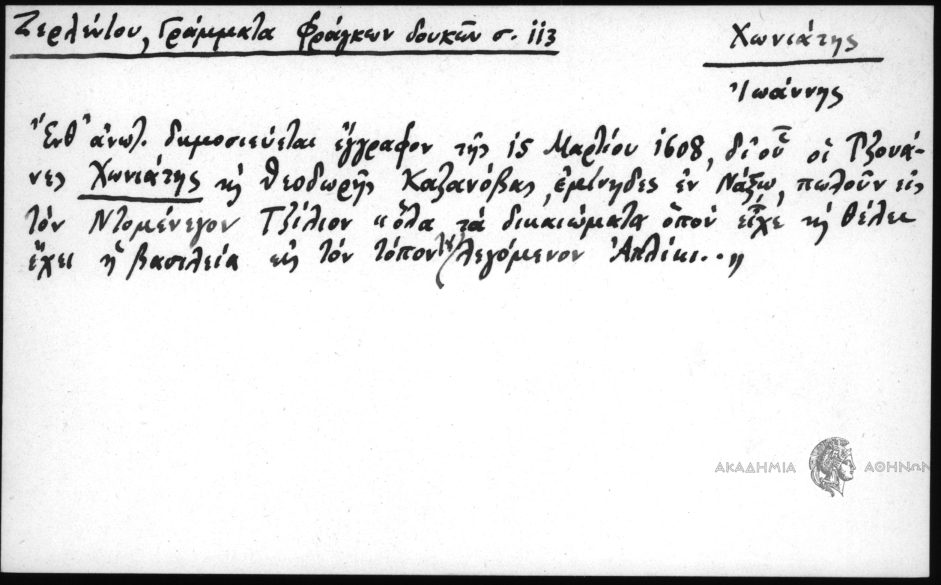 Ζερλέντου, Γράμματα Φράγκων δουκῶν σ. 113
Χωνιάτης
Ἰωάννης
Ἔνθ' ἀνωτ. δημοσιεύεται ἔγγραφον τῆς 15 Μαρτίου 1608, δι' οὗ οἱ Τζουά-
νες Χωνιάτης κὴ Θεοδωρῆς Καζανόβας, ἐμίνηδες ἐν Νάξῳ, πωλοῦν εἰς
τὸν Ντομένεγον Τζίλιον "ὅλα τὰ δικαιώματα ὁποὺ εἶχε κὴ θέλει
ἔχει ἡ βασιλεία εἰς τὸν τόπον τὸν λεγόμενον Ἀπλίκι.."
ΑΚΑΔΗΜΙΑ ΑΘΗΝΩΝ